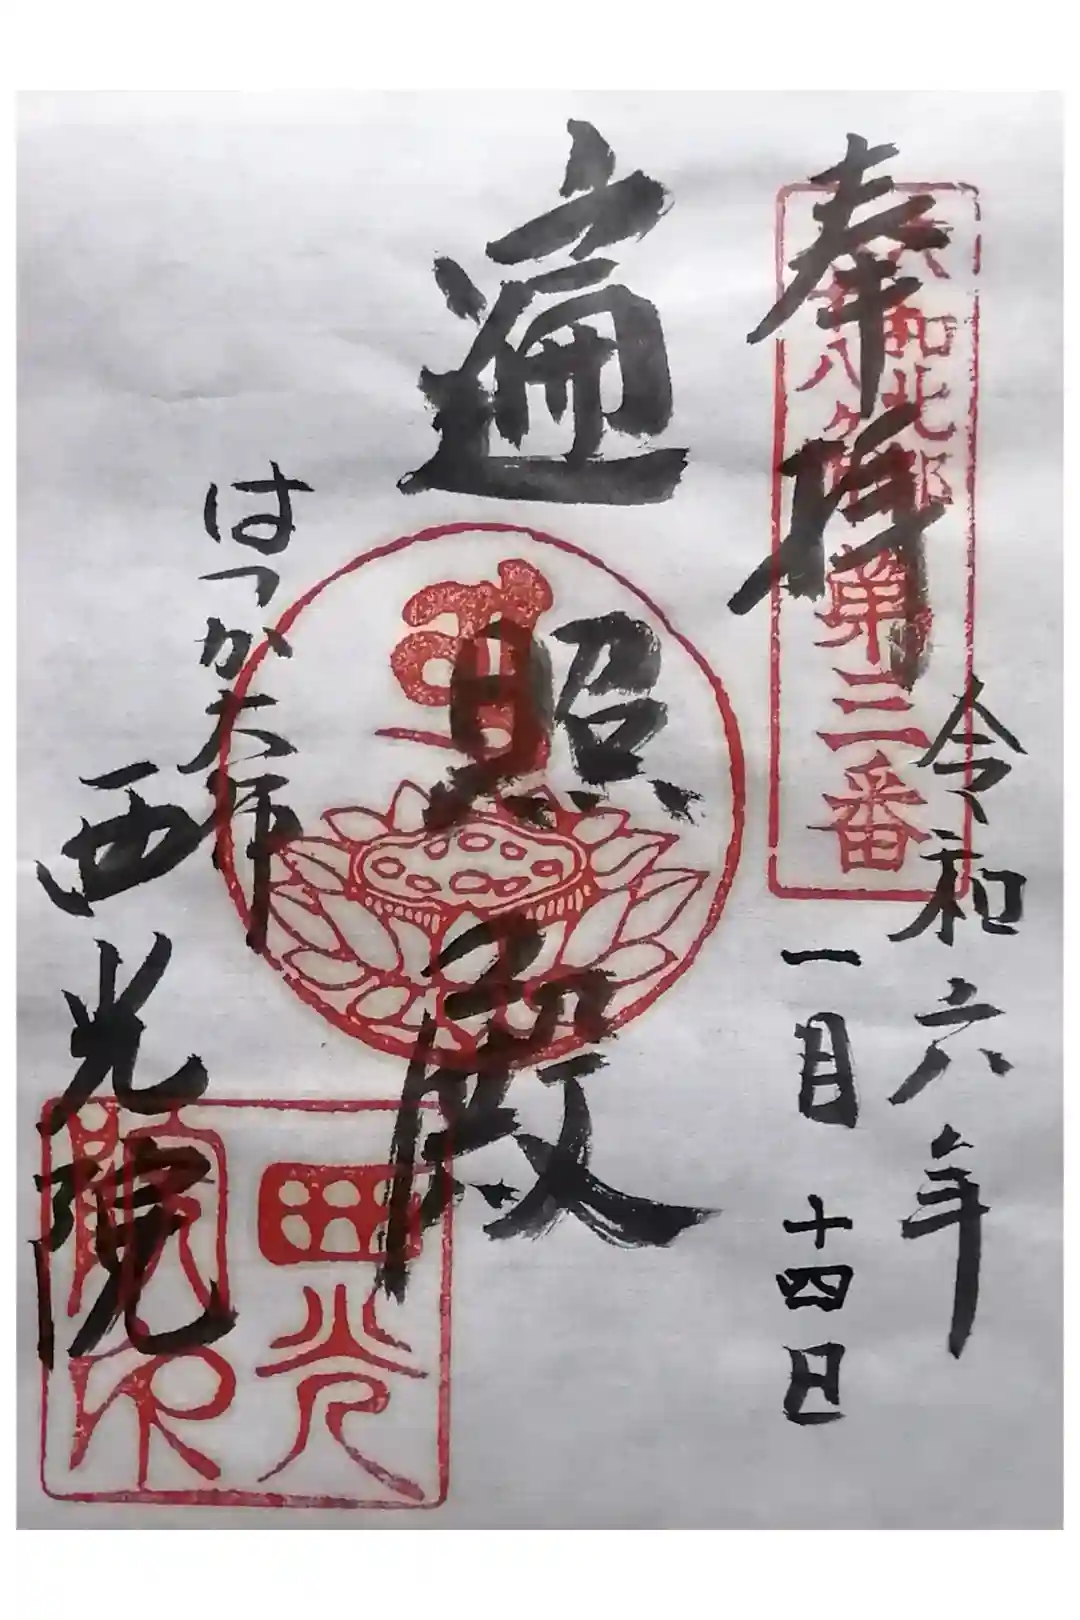 奉拝
大和北部
八十八ヶ所第三番
令和六年
一月十四日
遍照殿
はっか大師
西光院
西光院印